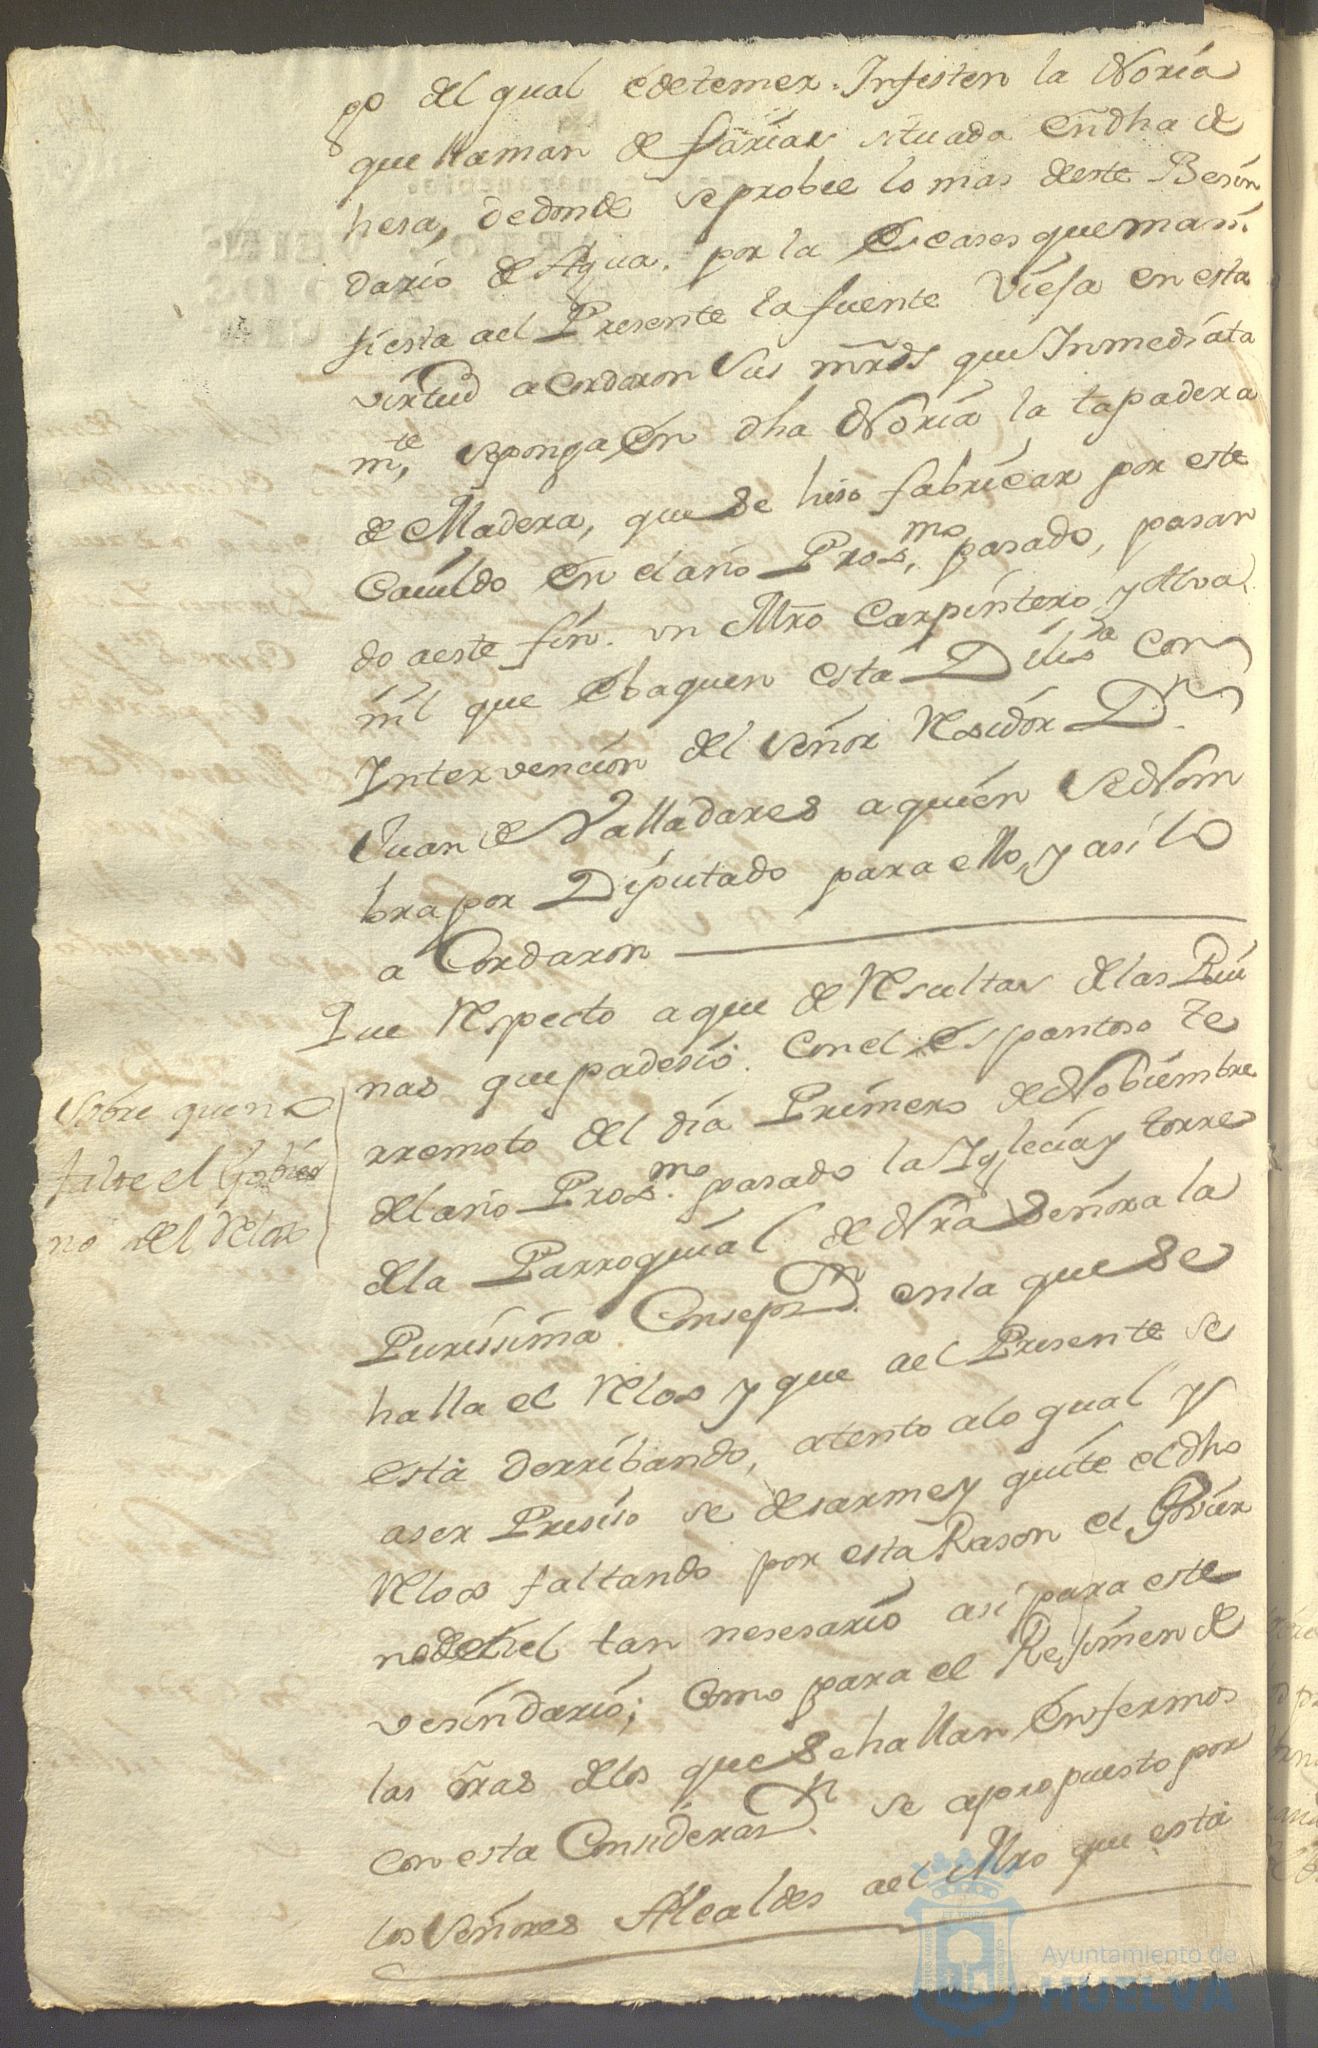 go del qual es de temer. Infesten la Noria
que llaman de farias situada en dha de
hesa, de donde se probee lo mas deste Besin
dario de Agua. por la escases que mani.
fiesta ael Presente la fuente Viefa en esta
virtud acordaron Sus mrds que Inmediata
mte, se ponga en dha Noria la tapadera
de Madera, que se hiso fabricar por este
Cauildo en el año Proxmo, pasado, pasan
do a este fin. vn Mro Carpintero y Alva.
ñil que ebaquen esta Diliga con
Intervencion del señor Residor Dn.
Juan de Valladares a quien se Nom
bra por Diputado para ello, y asi lo
a Cordaron
Que Respecto a que de Resultas de las Rui
nas que padesio. con el espantoso te
rremoto del dia Primero de Nobiembre
del año Proxmo. pasado la Iglecia y torre
dela Parroquial de Nra Señora la
Purissima Consepn. en la que se
halla el Relox y que ael Presente se
està derribando, atento alo qual y
aser Presiso se desarme y quite el dho
Relox faltando por esta Rason el Govier
no del tan nesesario asi para este
vesindario; como para el Resimen de
las oras delos que se hallan enfermos
con esta Considerasn. se apropuesto por
los Señores Alcaldes ael Mro que està
Sobre que no
falte el Gobier
no del Relox
Ayuntamiento de
HUELVA